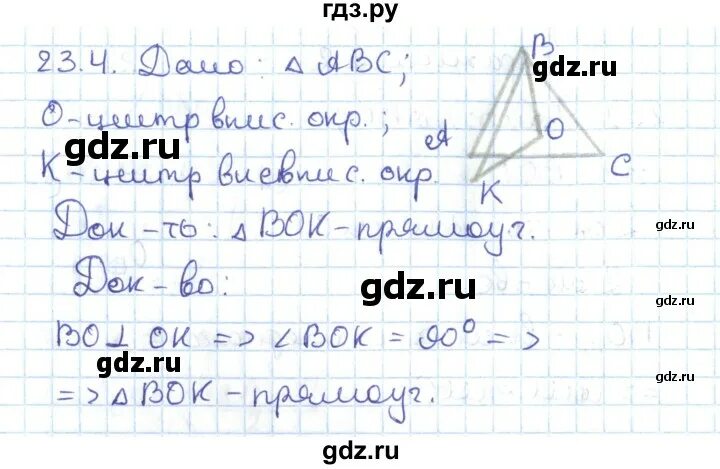 гдз.ру
23.4. Дано: △ ABC;
O-центр впис. окр.;
K-центр вневпис. окр.
Док-ть: △ BOK-прямоуг.
Док-во:
BO⊥OK => ∠BOK = 90° =>
=> △ BOK-прямоуг.
B
A
O
C
K
gdz.ru
gdz.ru
gdz.ru
gdz.ru
gdz.ru
gdz.ru
gdz.ru
gdz.ru
gdz.ru
gdz.ru